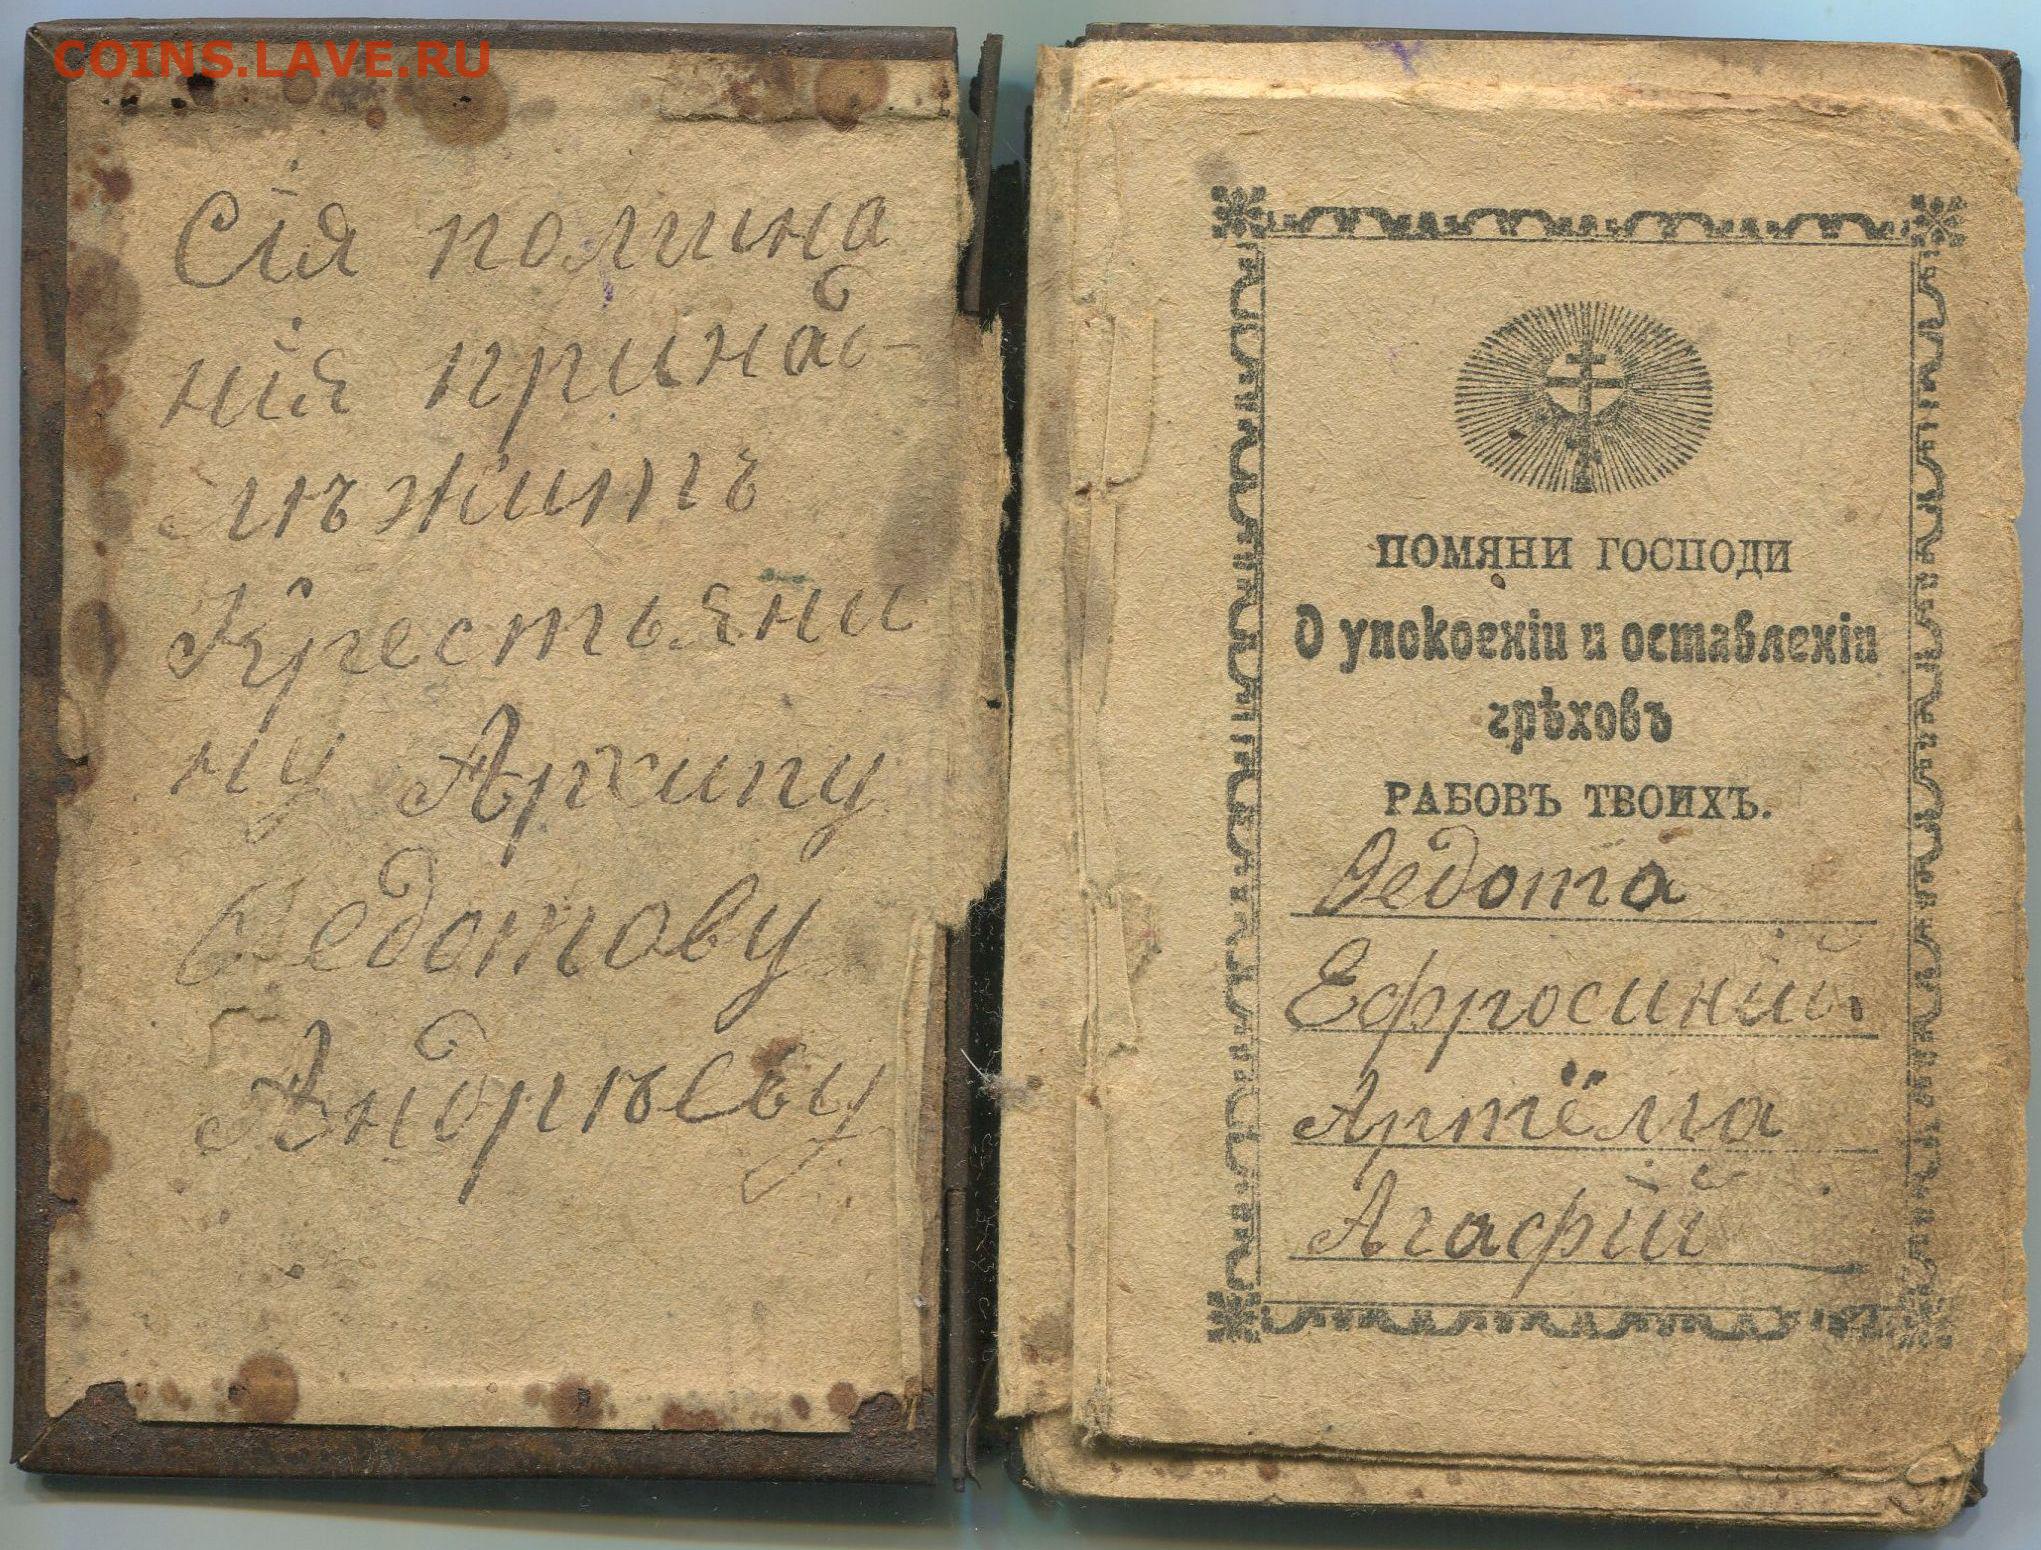 COINS.LAVE.RU
Сія помина
нія принад-
лѣжитъ
Крестьяни
ну Архипу
Ѳедотову
Андрѣеву
ПОМЯНИ ГОСПОДИ
О упокоеніи и оставленіи
грѣховъ
РАБОВЪ ТВОИХЪ.
Ѳедота
Ефросиній
Артёма
Агафій